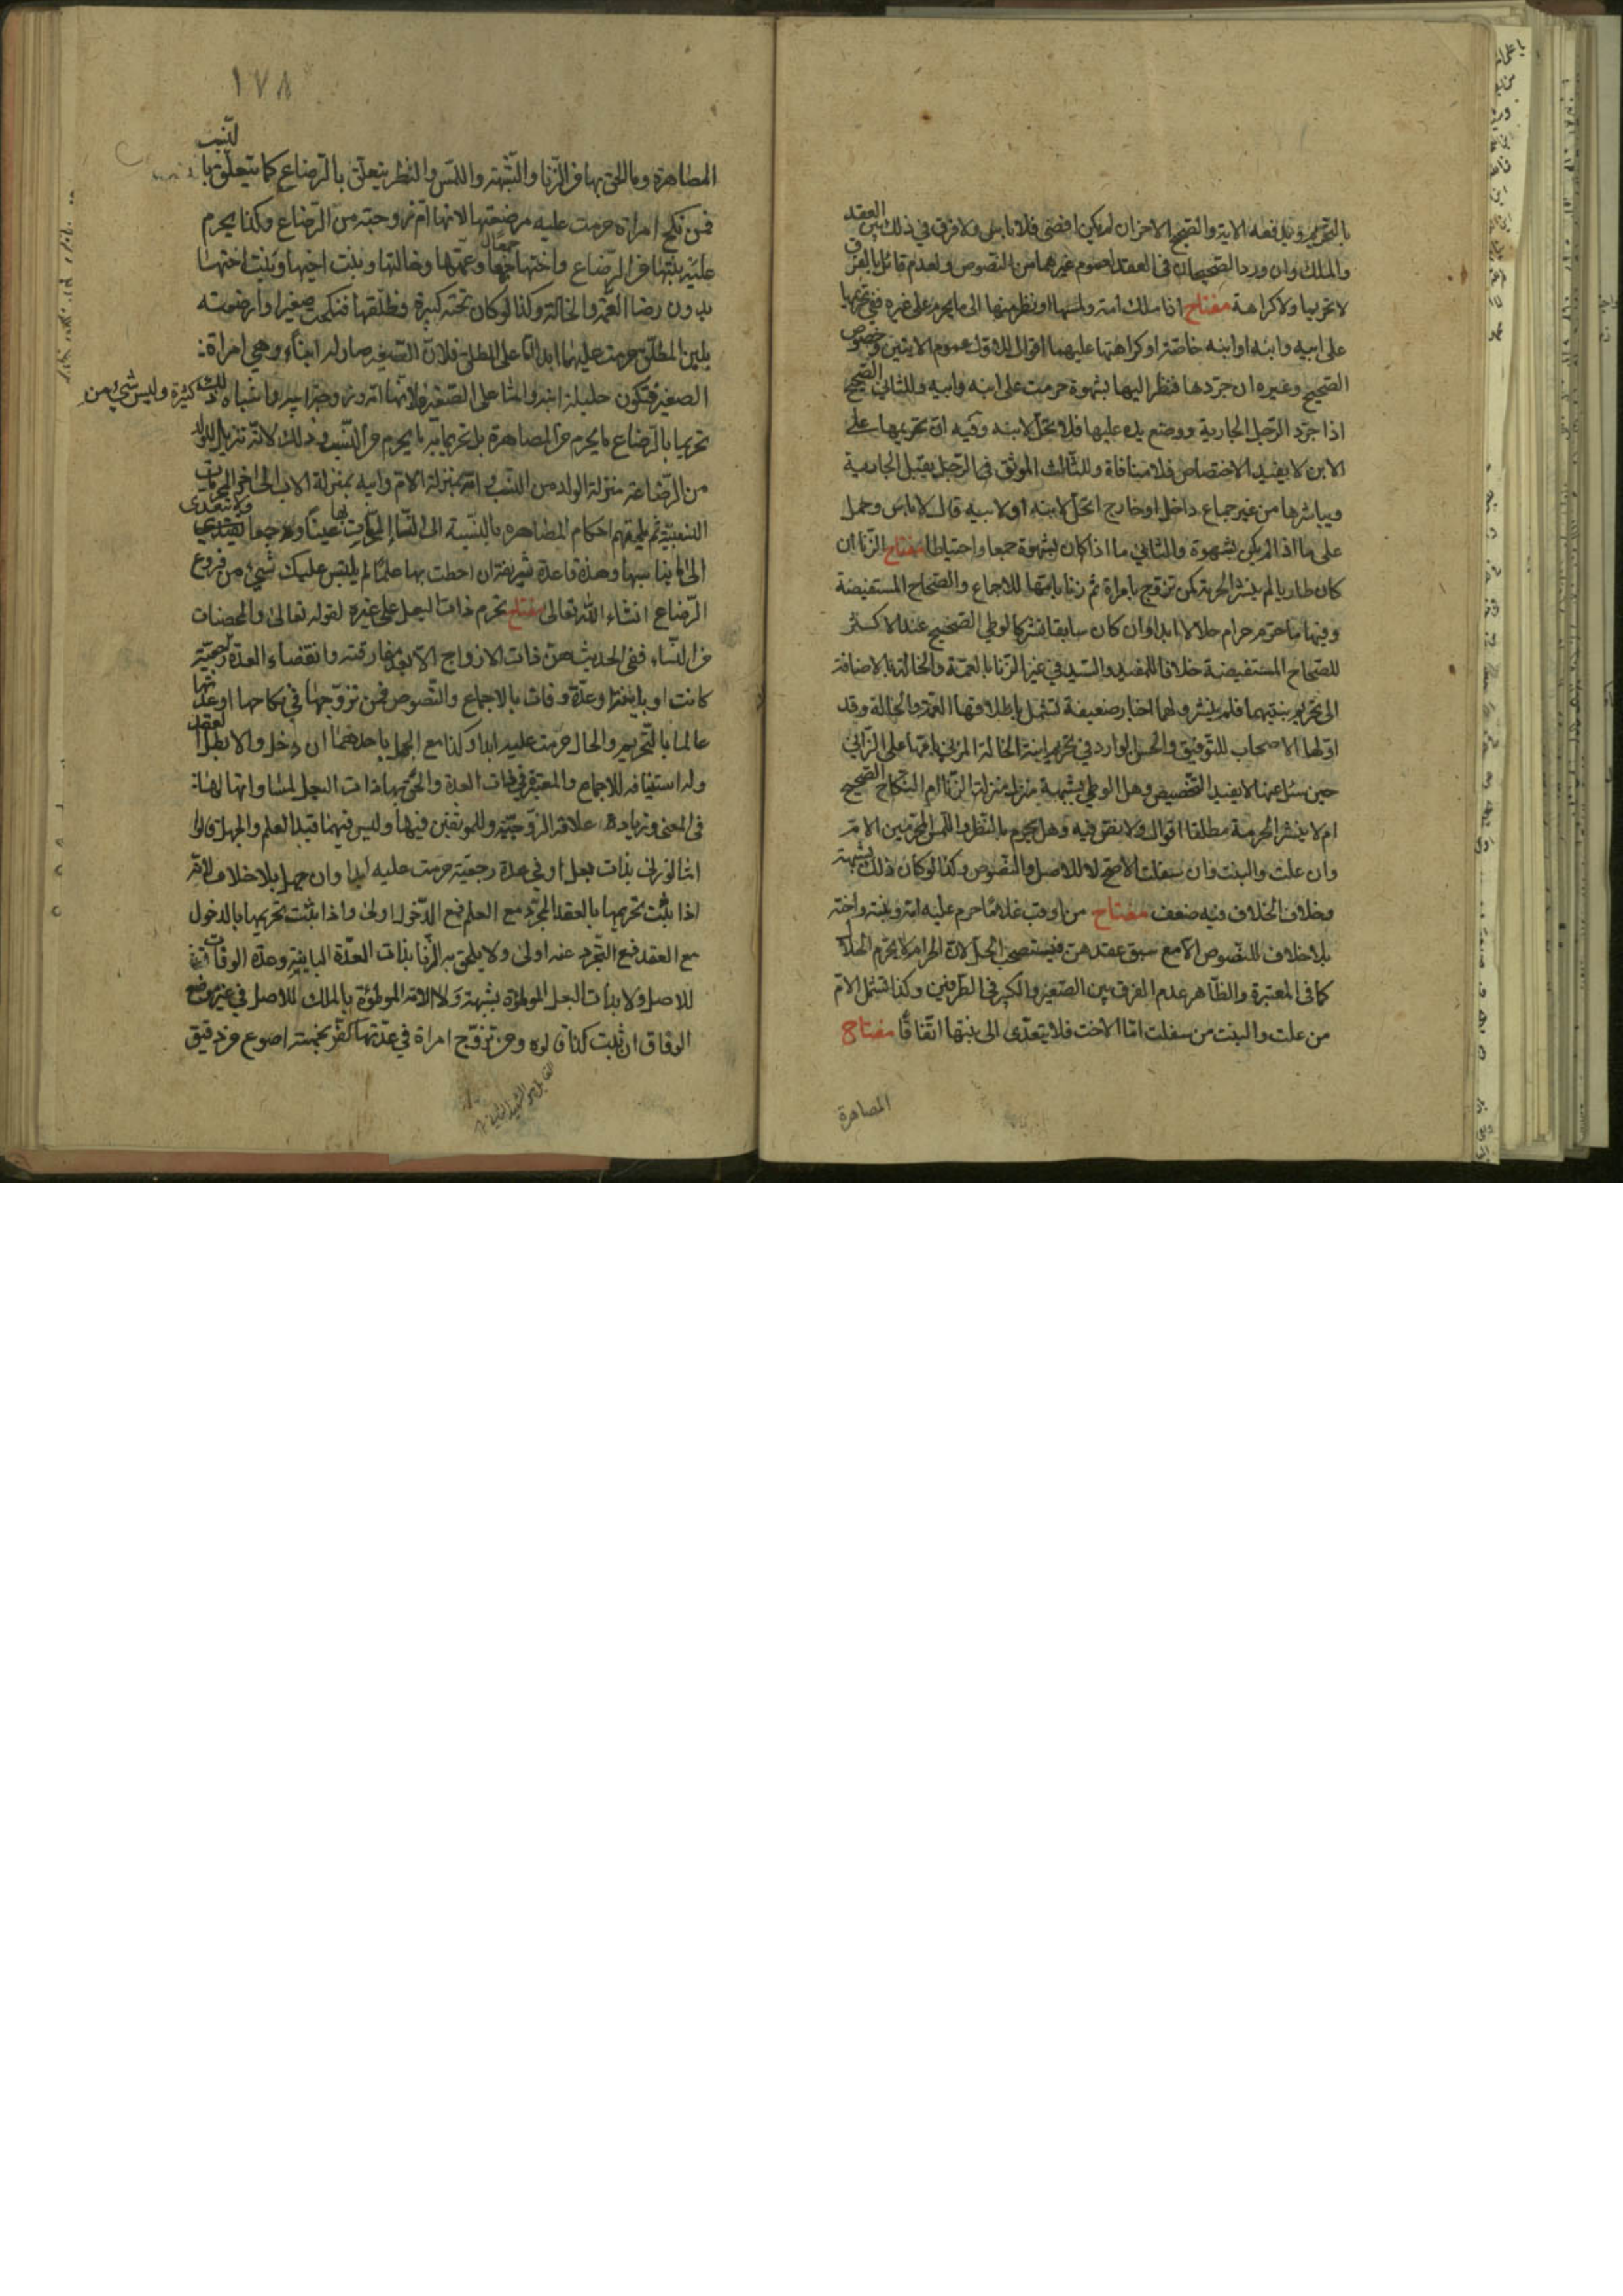 بالتحريم ويدفعه الاية والصحيح الاخر ان لم يكن افضى فلا باس ولا فرق في ذلك بين العقد
والملك وان ورد الصحيحان في العقد لعموم غيرهما من النصوص ولعدم قائل بالفرق
لا تحريما ولا كراهة مفتاح اذا ملك امة ولمسها او نظر منها الى ما يحرم على غيره ففي تحريمها
على ابيه وابنه او ابنه خاصة او كراهتها عليهما اقوال للاول عموم الايتين وخصوص
الصحيح وغيره ان جردها فنظر اليها بشهوة حرمت على ابنه وابيه وللثاني الصحيح
اذا جرد الرجل الجارية ووضع يده عليها فلا تحل لابنه وفيه ان تحريمها على
الابن لا يفيد الاختصاص فلا منافاة وللثالث الموثق في الرجل يقبل الجارية
ويباشرها من غير جماع داخل او خارج اتحل لابنه او لابيه قال لا باس وحمل
على ما اذا لم يكن بشهوة والثاني ما اذا كان بشهوة جمعا واحتياطا مفتاح الزنا ان
كان طاريا لم ينشر الحرمة كمن تزوج بامراة ثم زنا بامها للاجماع والصحاح المستفيضة
وفيها ما حرم حرام حلالا ابدا وان كان سابقا نشر كالوطي الصحيح عند الاكثر
للصحاح المستفيضة خلافا للمفيد والسيد في غير الزنا بالعمة والخالة بالاضافة
الى تحريم بنتيهما فلم ينشر ولهما اخبار ضعيفة تشمل باطلاقها العمة والخالة وقد
اولها الاصحاب للتوفيق والحسن الوارد في تحريم ابنة الخالة المزني بامها على الزاني
حين سئل عنها لا يفيد التخصيص وهل الوطي بشبهة منزل منزلة الزنا ام النكاح الصحيح
ام لا ينشر الحرمة مطلقا اقوال ولا نص فيه وهل يحرم بالنظر واللمس المحرمين الام
وان علت والبنت وان سفلت الاصح لا للاصل والنصوص وكذا لو كان ذلك بشبهة
وخلاف الخلاف فيه ضعف مفتاح من اوقب غلاما حرم عليه امه وبنته واخته
بلا خلاف للنصوص الا مع سبق عقدهن فيستصحب الحل لان الحرام لا يحرم الحلال
كما في المعتبرة والظاهر عدم الفرق بين الصغير والكبير في الطرفين وكذا تشمل الام
من علت والبنت من سفلت اما الاخت فلا يتعدى الى بنتها اتفاقا مفتاح
المصاهرة
١٧٨
المصاهرة وما الحق بها من الزنا والشبهة واللمس والنظر يتعلق بالرضاع كما يتعلق بالنسب
فمن نكح امراة حرمت عليه مرضعتها لانها ام زوجته من الرضاع وكذا يحرم
عليه بنتها من الرضاع واختها جمعا وعمتها وخالتها وبنت اخيها وبنت اختها
بدون رضا العمة والخالة وكذا لو كان تحته كبيرة فطلقها فنكحت صغيرا وارضعته
بلبن المطلق حرمت عليهما ابدا اما على المطلق فلان الصغير صار له ابنا وهي امراة
الصغير فتكون حليلة ابنه واما على الصغير فلانها امه وزوجة ابيه واشباه ذلك كثيرة وليس شيئ من
تحريما بالرضاع ما يحرم من المصاهرة بل تحريما به ما يحرم من النسب وذلك لانه تنزيل للولد
من الرضاعة منزلة الولد من النسب وامه بمنزلة الام وابيه بمنزلة الاب الى اخر المحرمات
النسبية ثم يلحقهم احكام المصاهرة بالنسبة الى النساء المحرمات بها عينا وجمعا ولا تتعدى
الى ما يناسبها وهذه قاعدة شريفة ان احطت بها علما لم يلتبس عليك شيئ من فروع
الرضاع انشاء الله تعالى مفتاح تحرم ذات البعل على غيره لقوله تعالى والمحصنات
من النساء ففي الحديث هن ذوات الازواج الا بعد مفارقته وانقضاء العدة رجعية
كانت او باينة او عدة وفات بالاجماع والنصوص فمن تزوجها في نكاحها او عدتها
عالما بالتحريم والحال حرمت عليه ابدا وكذا مع الجهل باحدهما ان دخل والا بطل العقد
وله استينافه للاجماع والمعتبرة في ذات العدة والحق بها ذات البعل لمساواتها لها
في المعنى وزيادة علاقة الزوجية وللموثقين فيها وليس فيهما قيد العلم والجهل قالوا
اما لو زنى بذات بعل او في عدة رجعية حرمت عليه ابدا وان جهل بلا خلاف لانه
اذا ثبت تحريمها بالعقد المجرد مع العلم فمع الدخول اولى واذا ثبت تحريمها بالدخول
مع العقد فمع التجرد عنه اولى ولا يلحق به الزنا بذات العدة الباينة وعدة الوفات
للاصل ولا بذات البعل الموطؤة بشبهة ولا الامة الموطؤة بالملك للاصل في غير موضع
الوفاق ان ثبت كذا قالوه ومن تزوج امراة في عدتها كفر بخمسة اصوع من دقيق